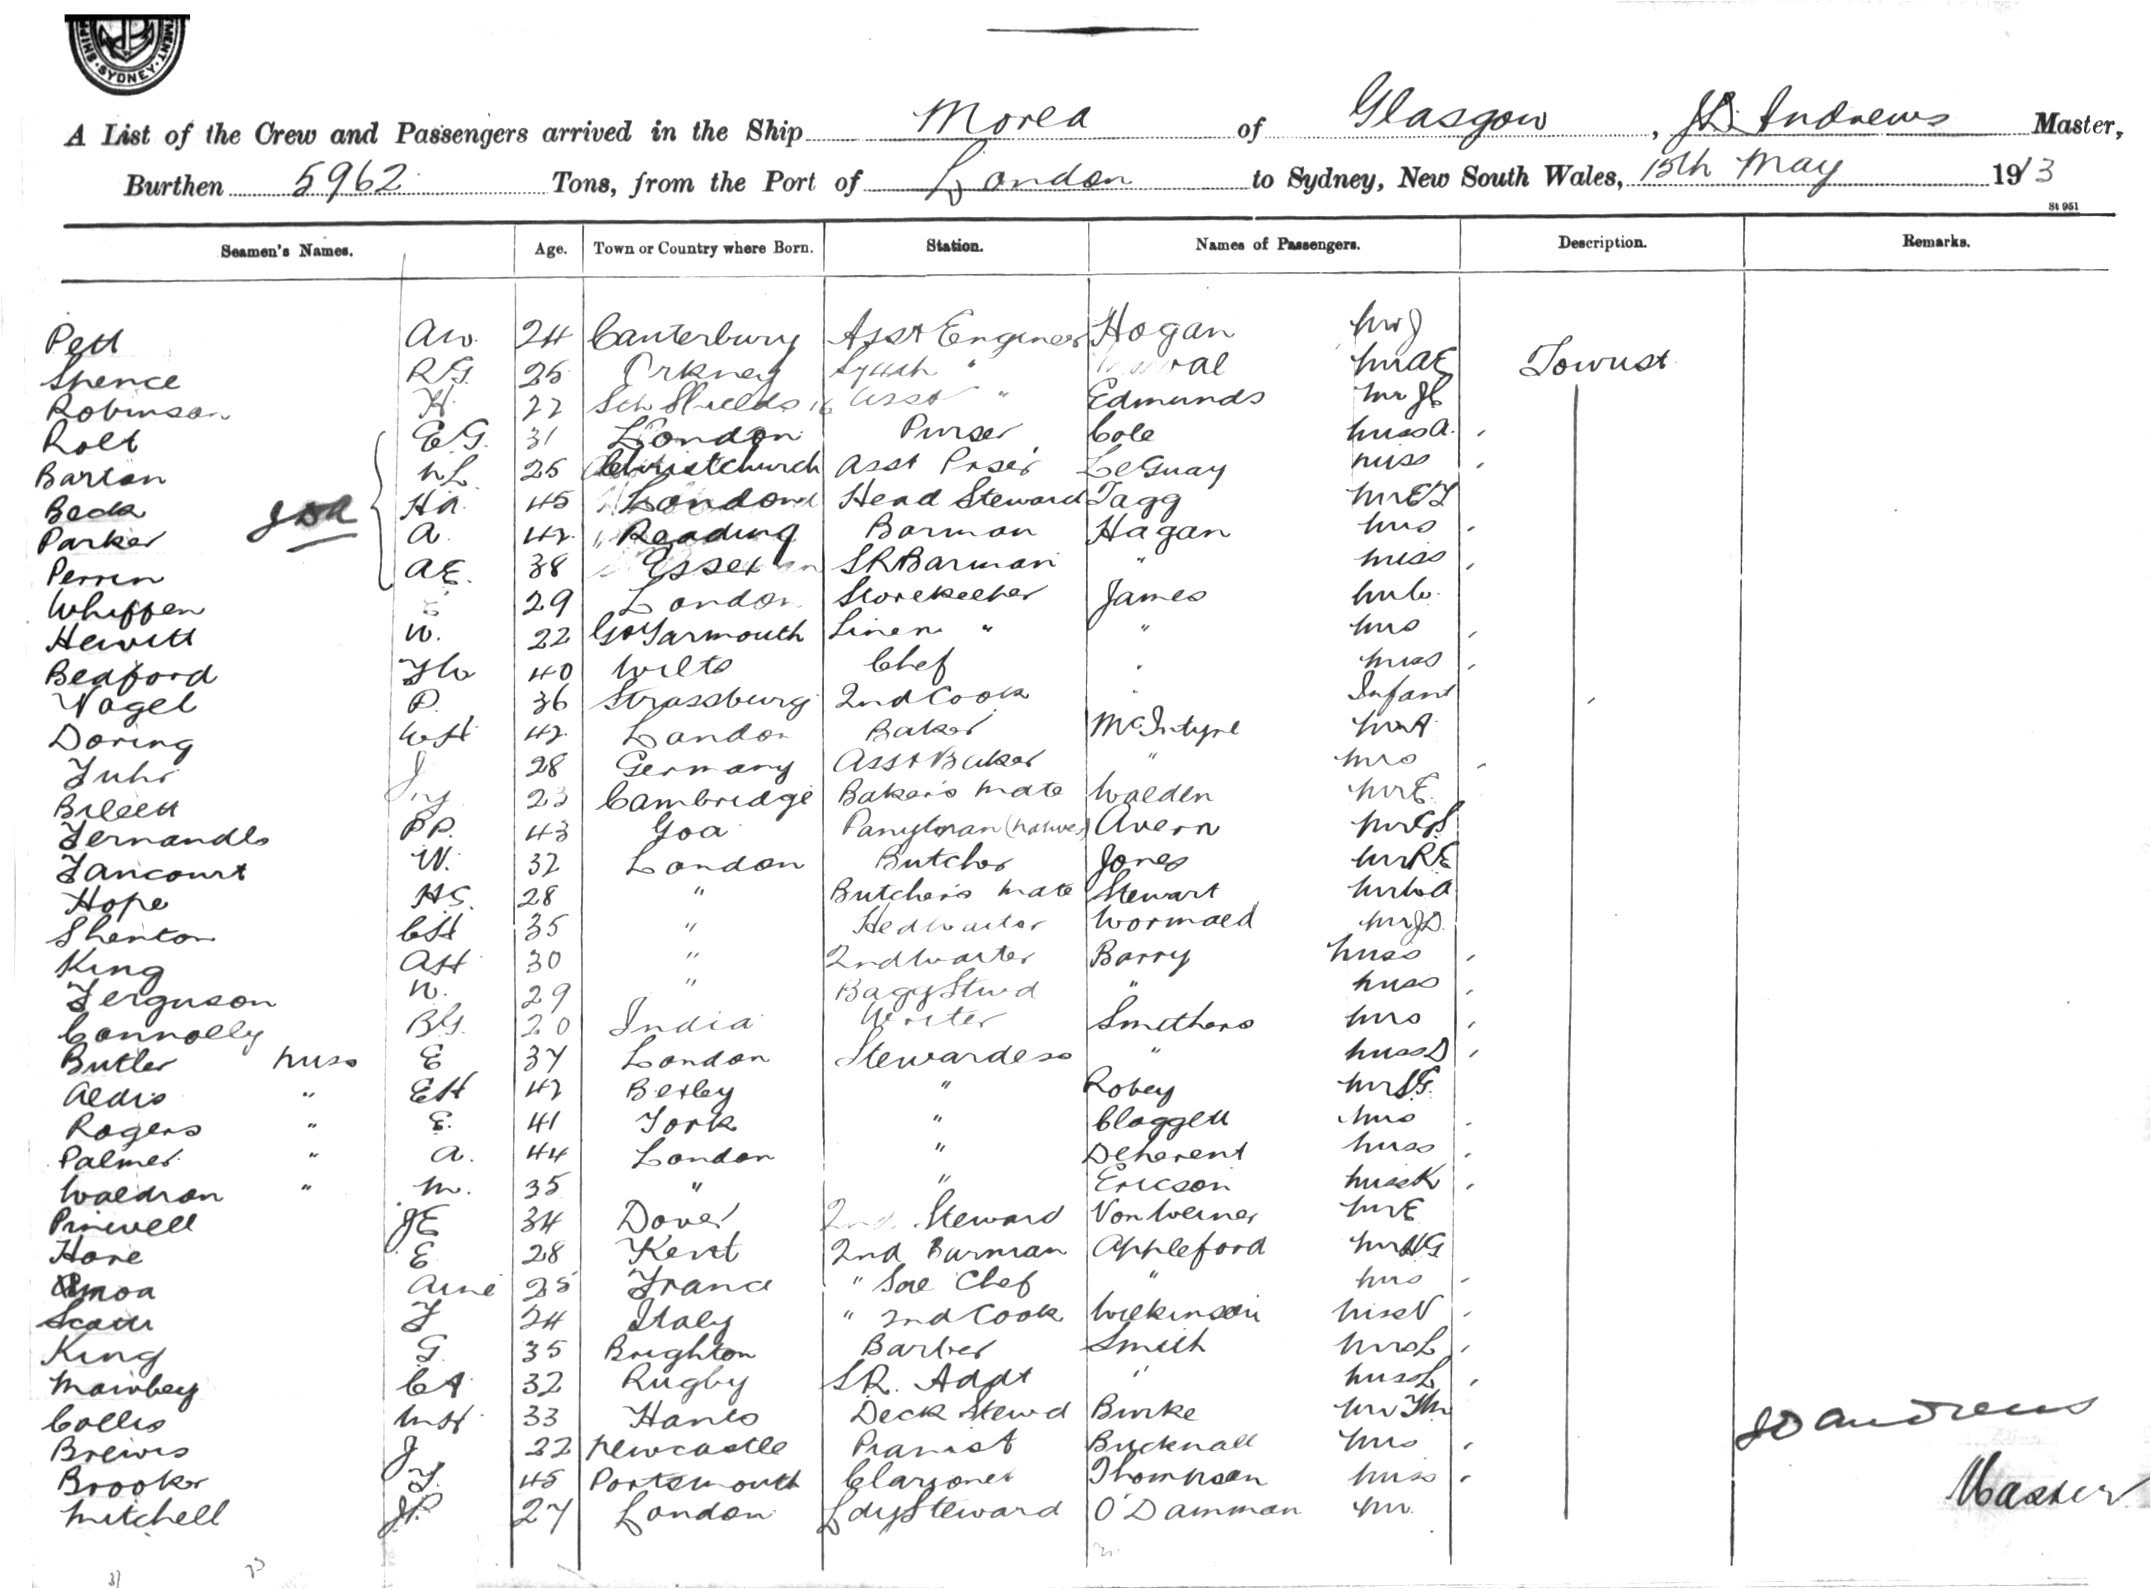 SYDNEY
A List of the Crew and Passengers arrived in the Ship Morea of Glasgow, JD Andrews Master,
Burthen 5962 Tons, from the Port of London to Sydney, New South Wales, 15th May 1913
St 951
Seamen's Names. Age. Town or Country where Born. Station. Names of Passengers. Description. Remarks.
Pett AW. 24 Canterbury Asst Engineer Hogan Mr J
Spence RG. 25 Orkney " Mr AE Tourist
Robinson H. 22 Sth Shields Asst " Edmunds Mr
Rolt EG. 31 London Purser Cole Miss A.
Barton 25 Christchurch Asst Le Guay Miss
Beck HA. 45 London Head Steward Tagg Mr
JDA
Parker A. 42 Reading Barman Hagan Mrs
Perrin AE. 38 Essex SR Barman " Miss
Whiffen 29 London Storekeeper James
Hewitt W. 22 Gt Yarmouth Linen " " Mrs
Bedford 40 Wilts Chef " Miss
Nagel P. 36 Strassburg 2nd Cook " Infant
Doring WH 42 London Baker McIntyre Mr A
Fuhr J 28 Germany Asst Baker " Mrs
23 Cambridge Bakers Mate Walden Mr E.
Fernandes PP. 43 Goa Pantryman (Native) Avern Mr
Fancourt W. 32 London Butcher Jones Mr RE
Hope HS. 28 " Butchers Mate Stewart Mr
Shenton CH 35 " Hedwaiter Wormald Mr JD.
King AH 30 " 2nd Waiter Barry Miss
Ferguson W. 29 " Bagg Stwd " Miss
Connolly BG. 20 India Writer Smithers Mrs
Butler Miss E 37 London Stewardess " Miss D
Aldis " EH 42 Bexley " Robey Mr
Rogers " E. 41 York " Claggett Mrs
Palmer " A. 44 London " Deherent Miss
Waldron " M. 35 " " Ericson Miss K
Pinwell JE 34 Dover 2nd Steward Von Werner Mr E
Hore E 28 Kent 2nd Barman Appleford Mr HG
Aimé 25 France " Chef " Mrs
F 24 Italy " 2nd Cook Wilkinson Miss V
King G. 35 Brighton Barber Smith Mrs L
Mawbey CA 32 Rugby SR. Addt " Miss L
Collis MH 33 Hants Deck Stewd Burke Mr
JD Andrews
Brewis J 22 Newcastle Pianist Bucknall Mrs
Brooker F. 45 Portsmouth Clarionet Thompson Miss
Master
Mitchell JP. 27 London Ldy Steward O'Damman Mr.